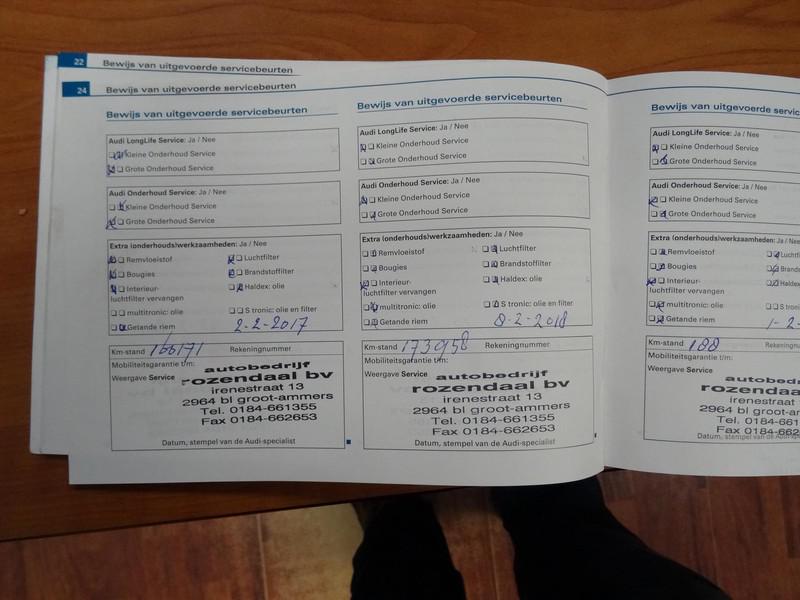 22 Bewijs van uitgevoerde servicebeurten
24 Bewijs van uitgevoerde servicebeurten
Bewijs van uitgevoerde servicebeurten
Audi LongLife Service: Ja / Nee
Kleine Onderhoud Service
Grote Onderhoud Service
Audi Onderhoud Service: Ja / Nee
Kleine Onderhoud Service
Grote Onderhoud Service
Extra (onderhouds)werkzaamheden: Ja / Nee
Remvloeistof Luchtfilter
Bougies Brandstoffilter
Interieur- Haldex: olie
luchtfilter vervangen
multitronic: olie S tronic: olie en filter
Getande riem 2-2-2017
Km-stand 166171 Rekeningnummer
Mobiliteitsgarantie t/m:
Weergave Service
autobedrijf
rozendaal bv
irenestraat 13
2964 bl groot-ammers
Tel. 0184-661355
Fax 0184-662653
Datum, stempel van de Audi-specialist
Bewijs van uitgevoerde servicebeurten
Audi LongLife Service: Ja / Nee
Kleine Onderhoud Service
Grote Onderhoud Service
Audi Onderhoud Service: Ja / Nee
Kleine Onderhoud Service
Grote Onderhoud Service
Extra (onderhouds)werkzaamheden: Ja / Nee
Remvloeistof Luchtfilter
Bougies Brandstoffilter
Interieur- Haldex: olie
luchtfilter vervangen
multitronic: olie S tronic: olie en filter
Getande riem 8-2-2018
Km-stand 173958 Rekeningnummer
Mobiliteitsgarantie t/m:
Weergave Service
autobedrijf
rozendaal bv
irenestraat 13
2964 bl groot-ammers
Tel. 0184-661355
Fax 0184-662653
Datum, stempel van de Audi-specialist
Bewijs van uitgevoerde servic
Audi LongLife Service: Ja / Nee
Kleine Onderhoud Service
Grote Onderhoud Service
Audi Onderhoud Service: Ja / Nee
Kleine Onderhoud Service
Grote Onderhoud Service
Extra (onderhouds)werkzaamheden: J
Remvloeistof Luchtf
Bougies Brands
Interieur- Haldex
luchtfilter vervangen
multitronic: olie S tron
Getande riem 1-2-
Km-stand 188 Rekening
Mobiliteitsgarantie t/m:
Weergave Service
autobedr
rozendaa
irenestraat
2964 bl groot-ar
Tel. 0184-66
Fax 0184-66
Datum, stempel van de Audi-s